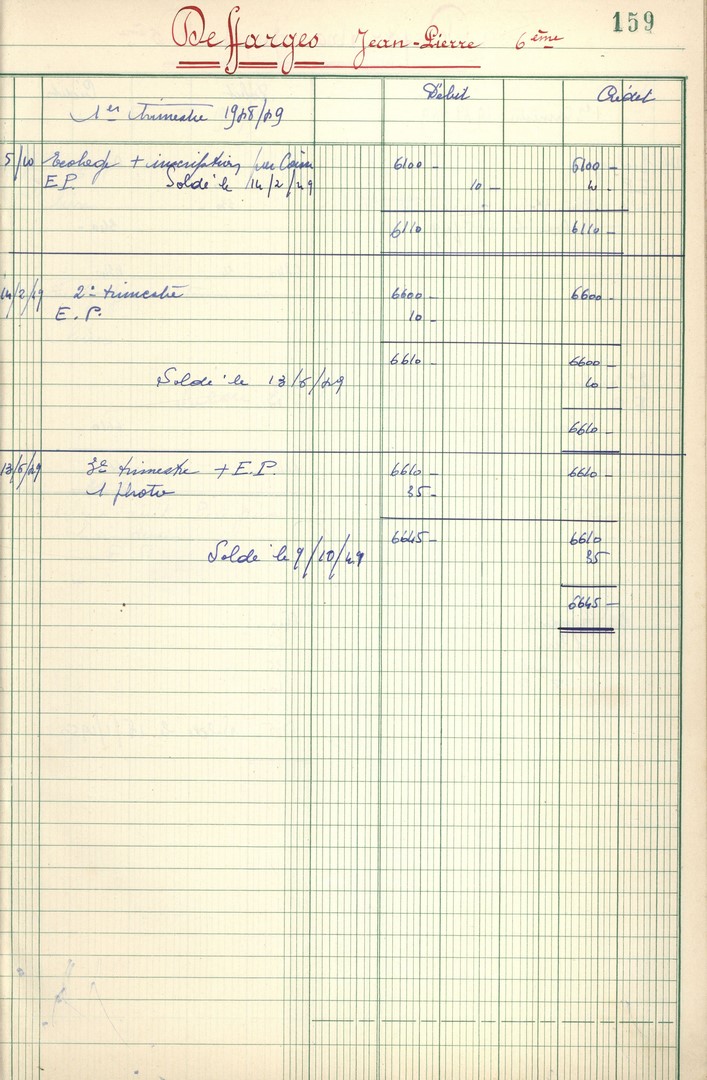 159
Deffarges Jean-Pierre 6ème
Débit Crédit
1er trimestre 1948/49
5/10 Ecolage + inscription par Caisse 6100 - 6100 -
E.P. Soldé le 14/2/49 10 - 10 -
6110 6110 -
14/2/49 2e trimestre 6600 - 6600 -
E.P. 10 -
6610 - 6600 -
Soldé le 13/5/49 10 -
6610 -
13/5/49 3e trimestre + E.P. 6610 - 6610 -
1 photo 35 -
6645 - 6610
Soldé le 9/10/49 35
6645 -